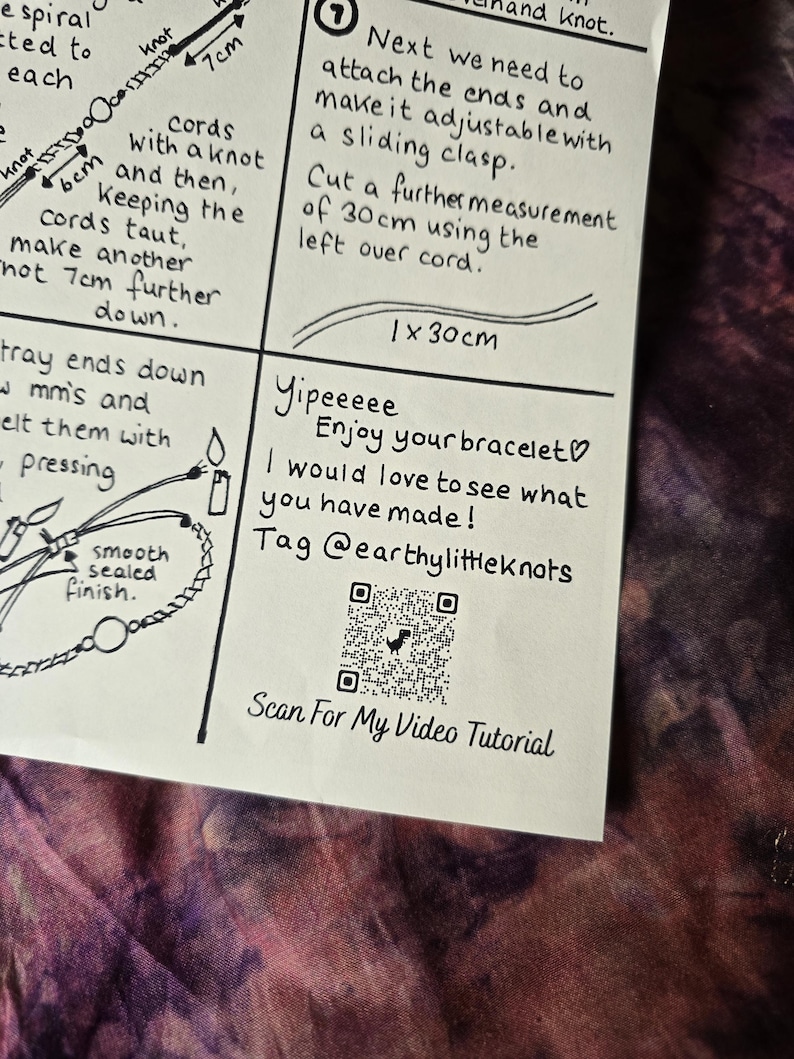 e spiral
cted to
each
knot
7cm
knot
6cm
cords
with a knot
and then,
keeping the
cords taut,
make another
not 7cm further
down.
hand knot.
7
Next we need to
attach the ends and
make it adjustable with
a sliding clasp.
Cut a further measurement
of 30cm using the
left over cord.
1 x 30cm
tray ends down
w mm's and
elt them with
, pressing
smooth
sealed
finish.
Yipeeeee
Enjoy your bracelet♡
I would love to see what
you have made!
Tag @earthylittleknots
Scan For My Video Tutorial